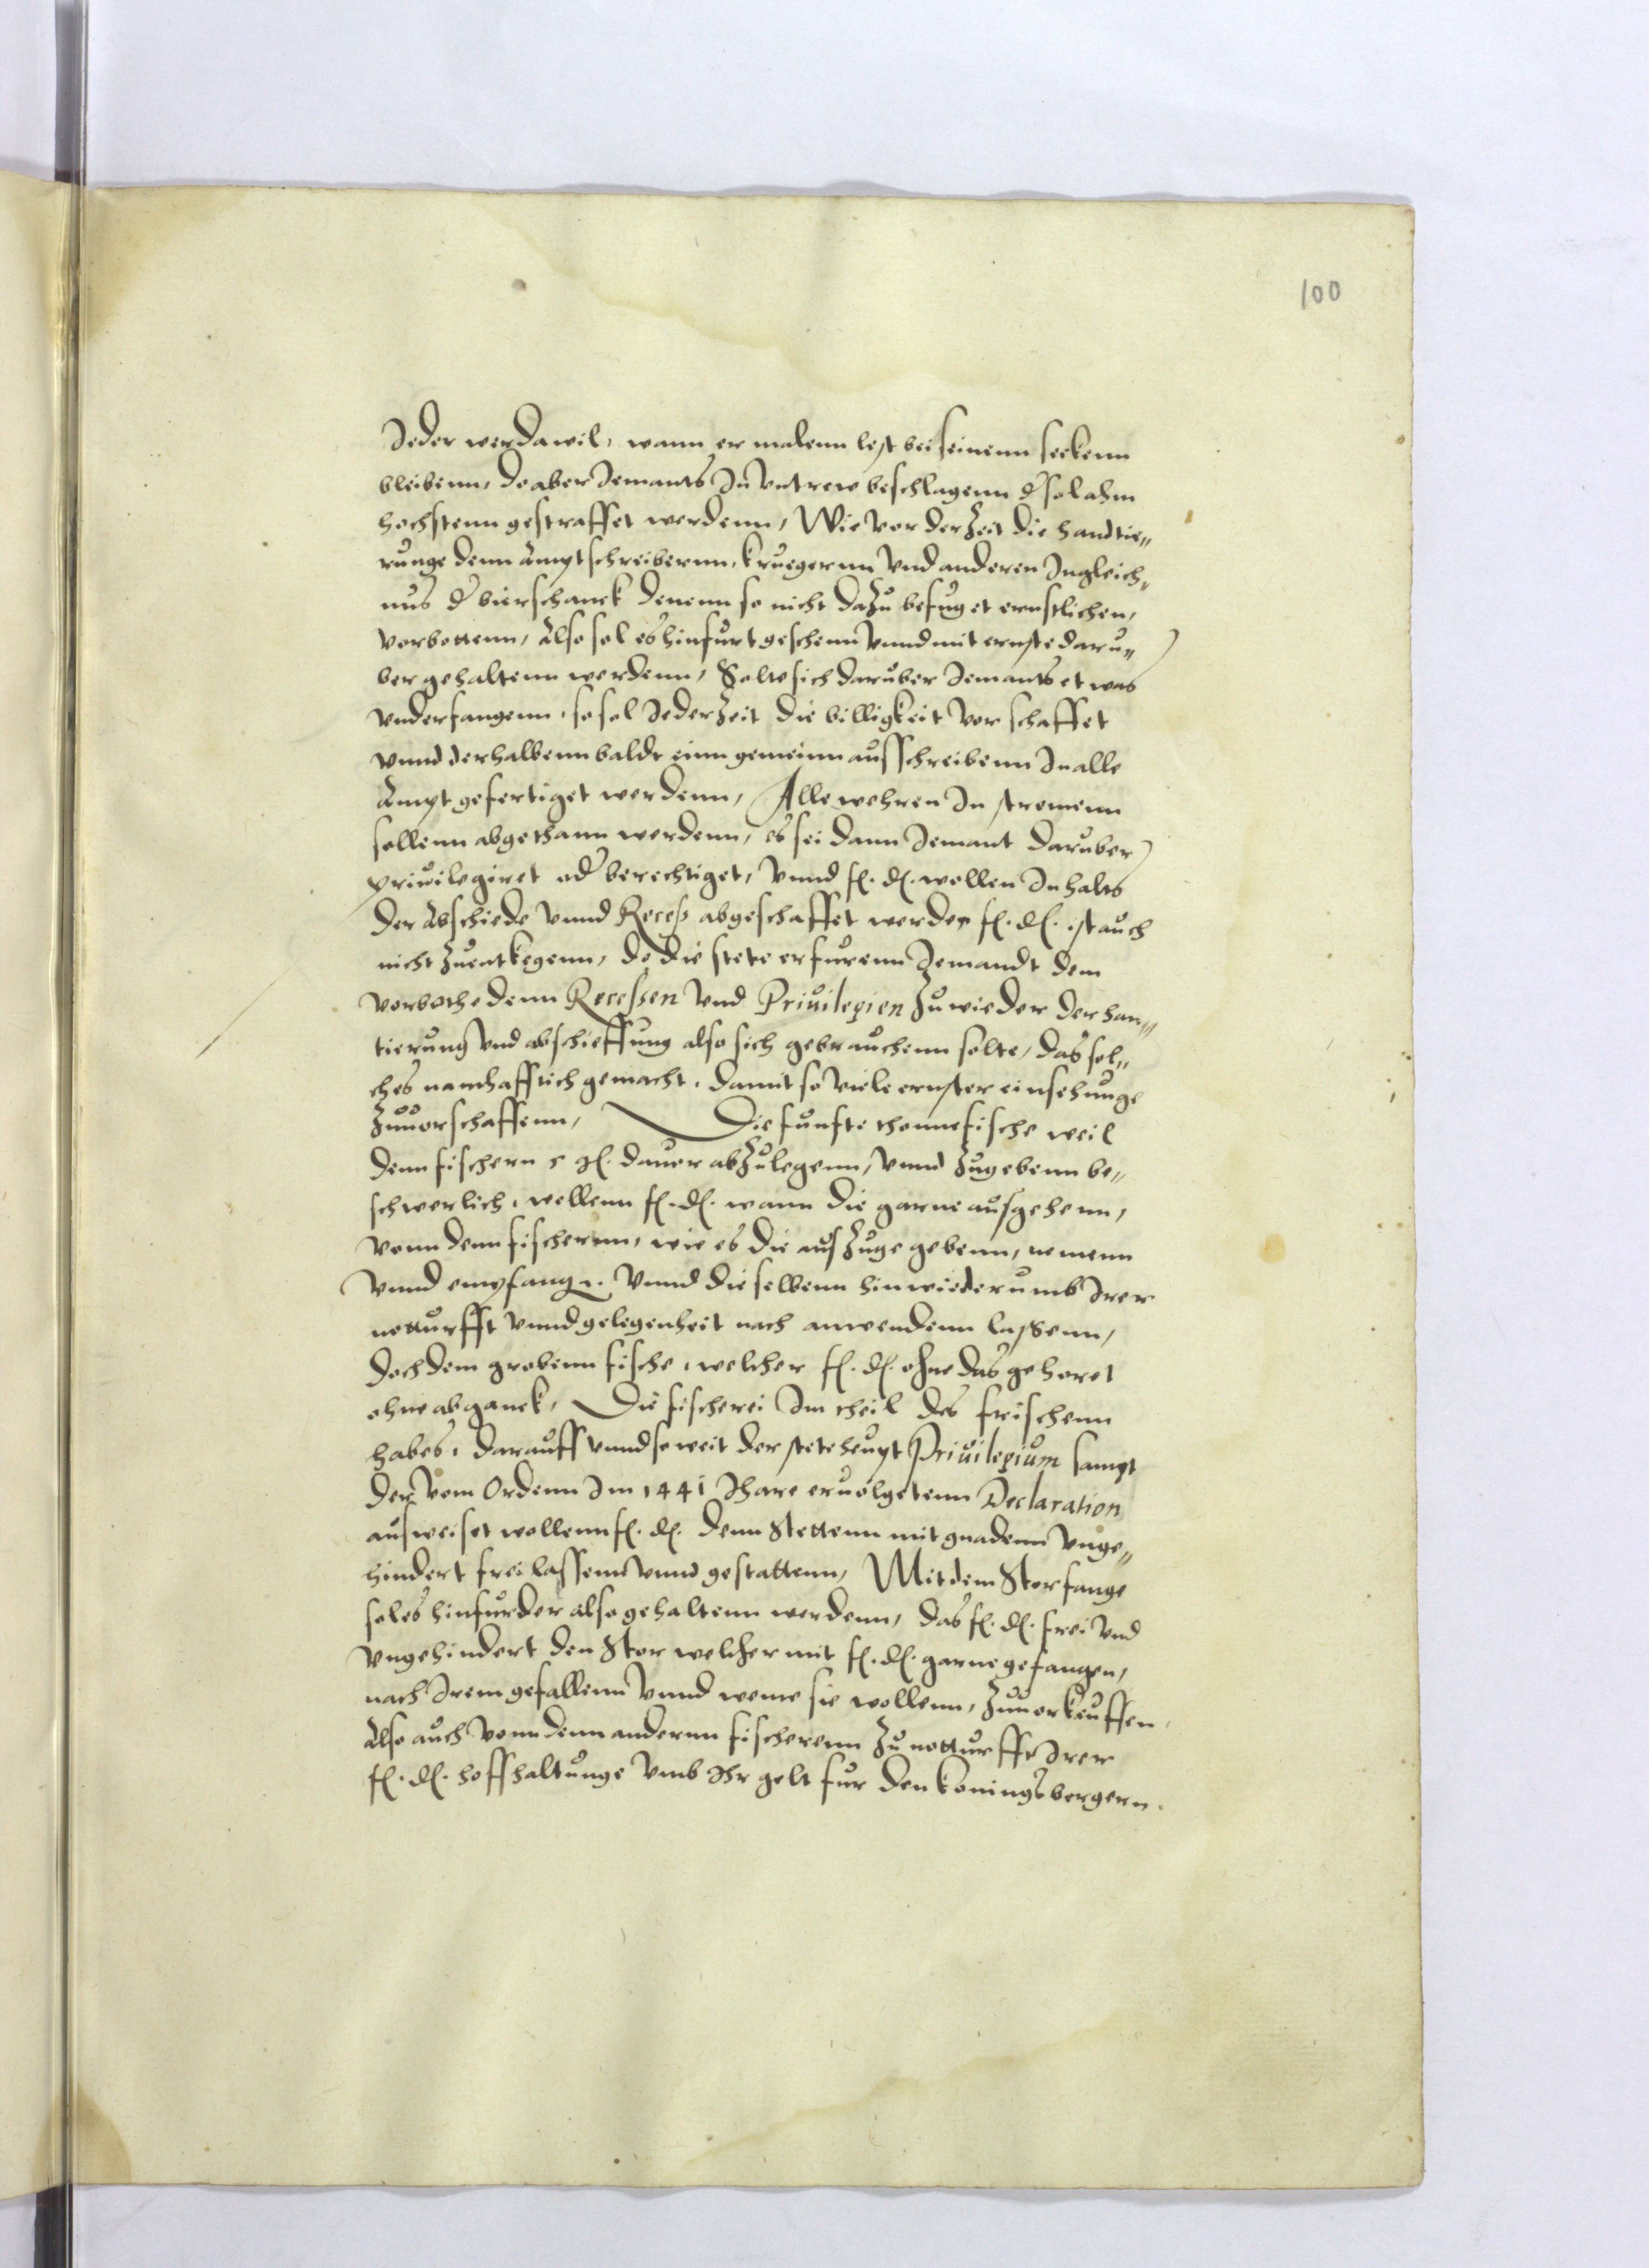 100
Jeder wer da wil, wann er malenn lest bei seinenn seckenn
bleibenn, do aber Jemants Jn vntrew beschlagenn d' sol ahm
hochstenn gestraffet werdenn, Wie vor der Zeit die handtie„
runge denn Amptschreibernn, kruegernn vnd anderen Jngleich„
nus d' bierschanck denenn so nicht dazu befuget ernstlichen,
vorbottenn, Also sol es hinfurt geschenn vnnd mit ernste daru„
ber gehaltenn werdenn, Solte sich daruber Jemants etwas
vnderfangenn, so sol Jeder Zeit die billigkeit vorschaffet
vnnd derhalbenn baldt einn gemeinn ausschreibenn Jn alle
Ampt gefertiget werdenn, Alle wehren Jn stromenn
sollenn abgethann werdenn, es sei dann Jemant daruber
priuilegiret od' berechtiget, vnnd f. d. wollen Jnhalts
der Abschiede vnnd Recess abgeschaffet werden f. d. ist auch
nicht zuentkegenn, do die stete erfurenn Jemandt dem
vorbothe denn Recessen vnd Priuilegien zuwieder der han„
tierung vnd abschieffung also sich gebrauchenn solte, das sol„
ches namhafftich gemacht, damit so viele ernster einsehunge
zuuorschaffenn, Die funfte thonne fische weil
denn fischern 5 dauor abzulegenn, vnnd zugebenn be„
schwerlich, wollenn f. d. wann die garne ausgehenn,
vonn denn fischernn, wie es die auszuge gebenn, nemenn
vnnd empfangen. vnnd dieselbenn hinwiederumb Jrer
notturfft vnnd gelegenheit nach anwendenn lassenn,
doch dem grobenn fische, welcher f. d. ohne das gehoret
ohne abganck, Die fischerei Jm theil des frischenn
habes, darauff vnnd so weit der stete heupt Priuilegium sampt
der vom Ordenn Jm 1441 Jhare eruolgetenn Declaration
ausweiset wollenn f. d. denn Stettenn mit gnadenn vnge„
hindert frei lassenn vnnd gestattenn, Mit dem Storfange
sol es hinfurder also gehaltenn werdenn, das f. d. frei vnd
vngehindert den Stor welcher mit f. d. garne gefangen,
nach Jrem gefallenn vnnd weme sie wollenn, zuuorkeuffen,
Also auch vonn denn andernn fischerenn zu notturfft Jrer
f. d. hoffhaltunge vmb Jhr gelt fur den konings bergern.